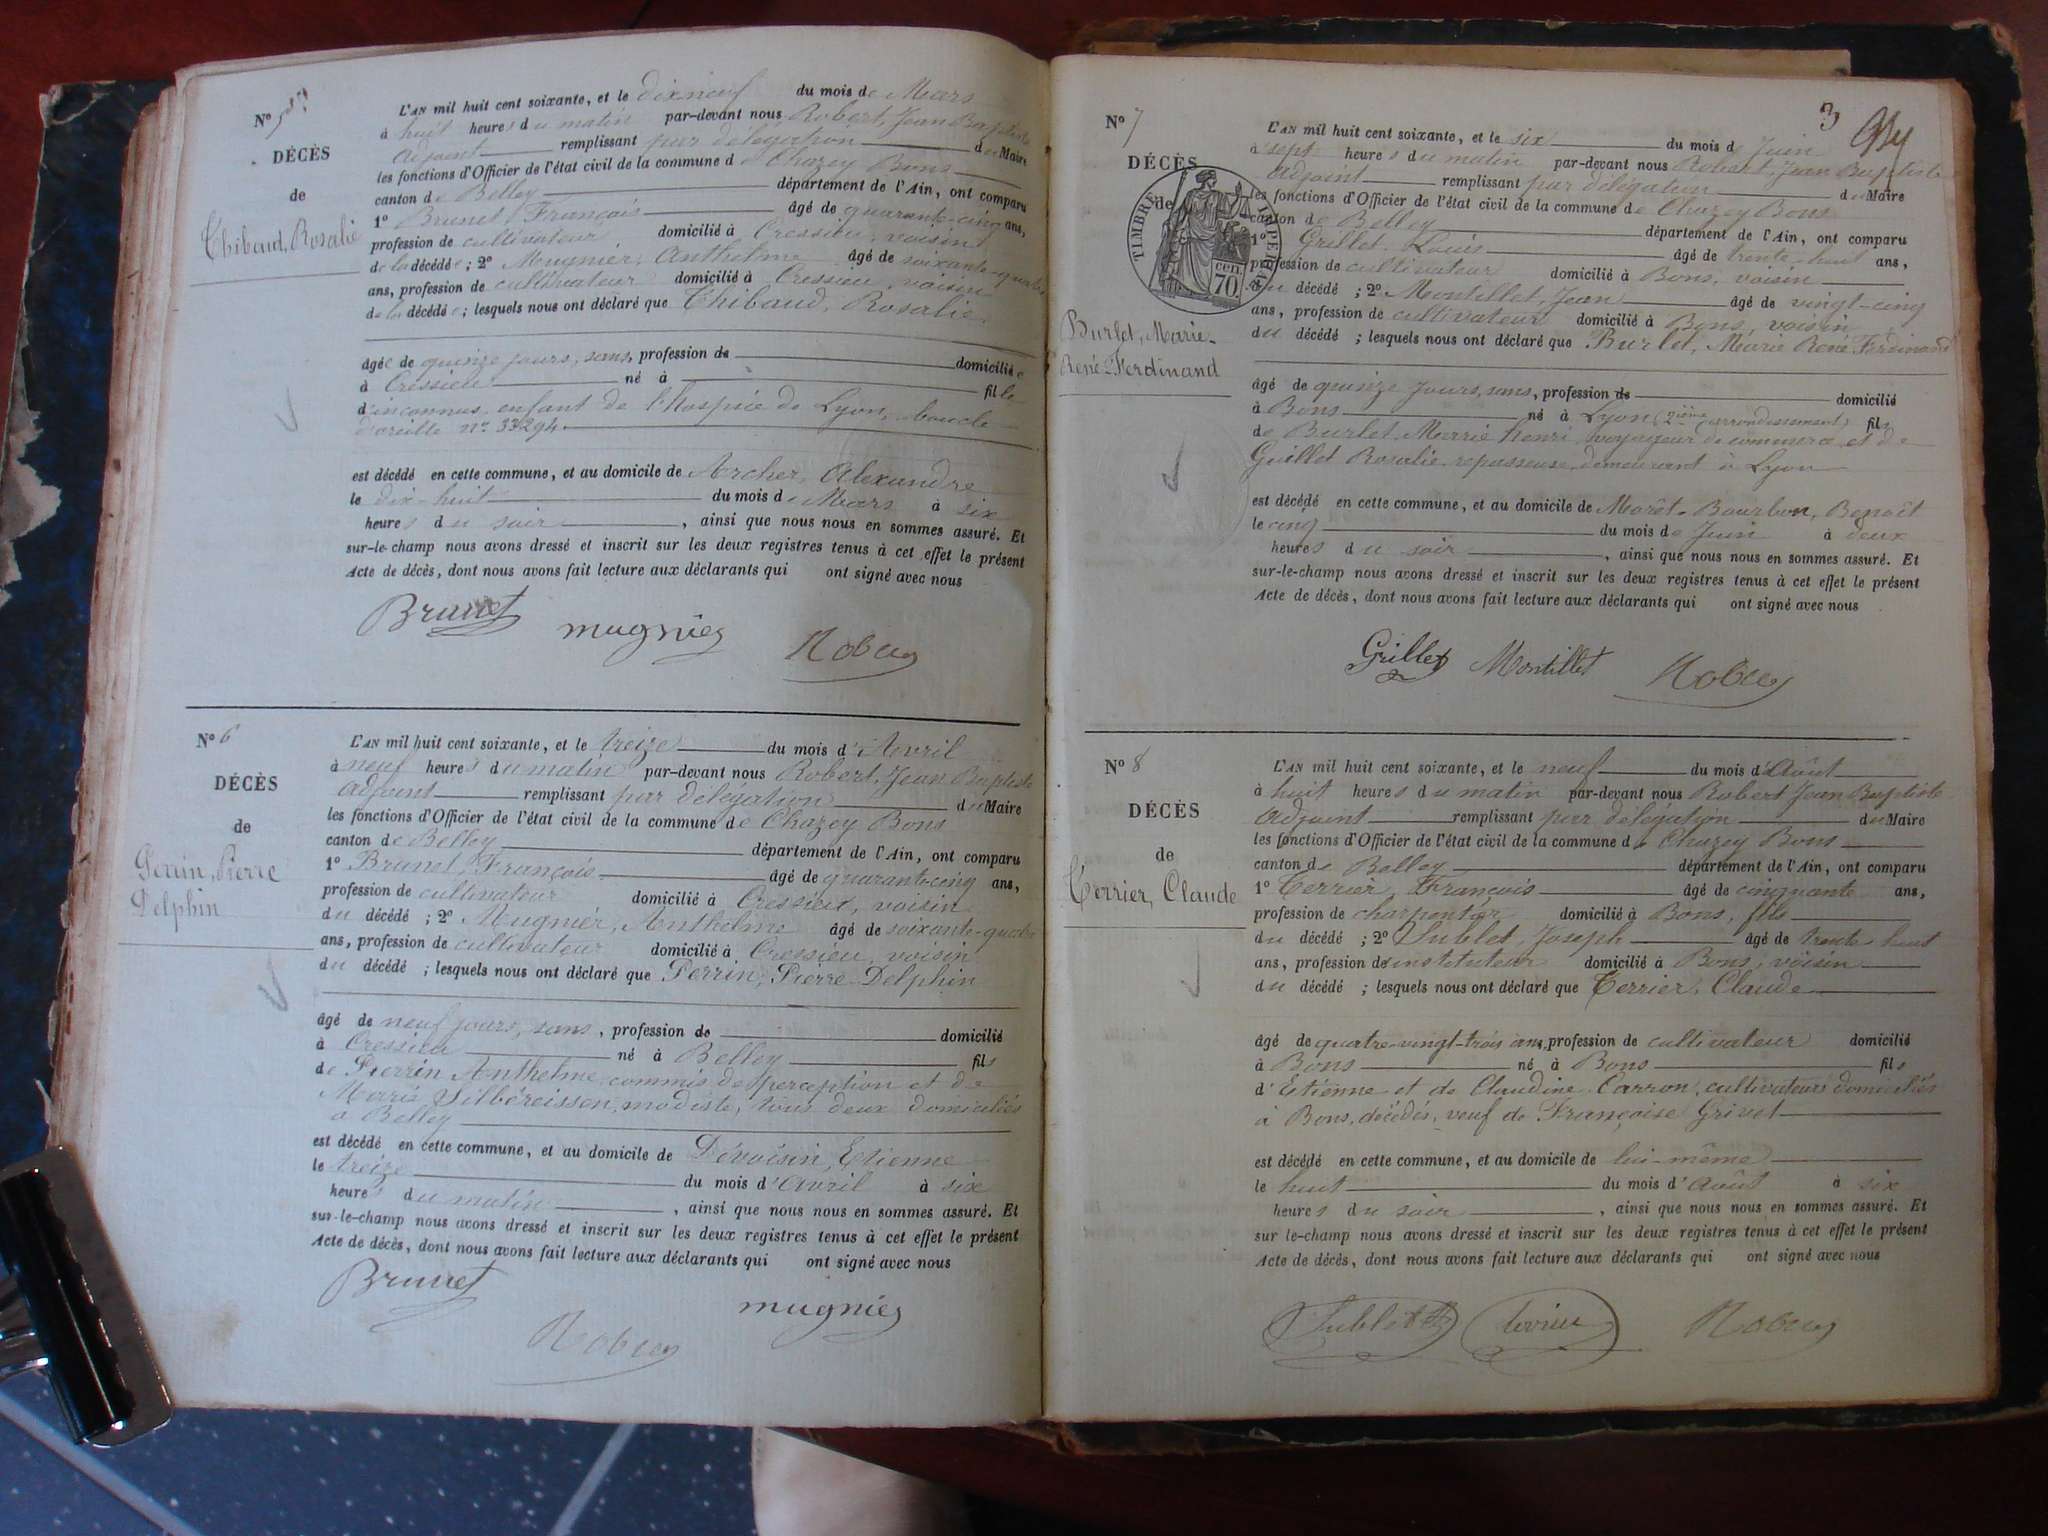 N° 5
DÉCÈS
de
Thibaud, Rosalie
L'AN mil huit cent soixante, et le dix neuf du mois de Mars
à huit heures du matin par-devant nous Robert, Jean Baptiste
Adjoint remplissant par délégation du Maire
les fonctions d'Officier de l'état civil de la commune de Chazey Bons
canton de Belley département de l'Ain, ont comparu
1° Brunet, François âgé de quarante-cinq ans,
profession de cultivateur domicilié à Cressieu, voisin
de la décédée ; 2° Mugnier, Anthelme âgé de soixante-quatre
ans, profession de cultivateur domicilié à Cressieu, voisin
de la décédée ; lesquels nous ont déclaré que Thibaud, Rosalie
âgée de quinze jours, sans, profession de domiciliée
à Cressieu né à fille
d'inconnus, enfant de l'hospice de Lyon, boucle
d'oreille n° 33294
est décédé en cette commune, et au domicile de Archer, Alexandre
le dix-huit du mois de Mars à six
heures du soir , ainsi que nous nous en sommes assuré. Et
sur-le-champ nous avons dressé et inscrit sur les deux registres tenus à cet effet le présent
Acte de décès, dont nous avons fait lecture aux déclarants qui ont signé avec nous
Brunet mugnier Robert
N° 6
DÉCÈS
de
Perrin, Pierre
Delphin
L'AN mil huit cent soixante, et le treize du mois d'Avril
à neuf heures du matin par-devant nous Robert, Jean Baptiste
Adjoint remplissant par délégation du Maire
les fonctions d'Officier de l'état civil de la commune de Chazey Bons
canton de Belley département de l'Ain, ont comparu
1° Brunet, François âgé de quarante-cinq ans,
profession de cultivateur domicilié à Cressieu, voisin
du décédé ; 2° Mugnier, Anthelme âgé de soixante-quatre
ans, profession de cultivateur domicilié à Cressieu, voisin
du décédé ; lesquels nous ont déclaré que Perrin, Pierre-Delphin
âgé de neuf jours, sans, profession de domicilié
à Cressieu né à Belley fils
de Pierrin Anthelme, commis de perception et de
Marie Silbereissen, modiste, tous deux domiciliés
à Belley
est décédé en cette commune, et au domicile de Dévoisin, Etienne
le treize du mois d'Avril à six
heures du matin , ainsi que nous nous en sommes assuré. Et
sur-le-champ nous avons dressé et inscrit sur les deux registres tenus à cet effet le présent
Acte de décès, dont nous avons fait lecture aux déclarants qui ont signé avec nous
Brunet mugnier
Robert
3
N° 7
DÉCÈS
de
TIMBRE IMPERIAL
70 cen.
Burlet, Marie-
René-Ferdinand
L'AN mil huit cent soixante, et le six du mois de Juin
à sept heures du matin par-devant nous Robert, Jean Baptiste
Adjoint remplissant par délégation du Maire
les fonctions d'Officier de l'état civil de la commune de Chazey Bons
canton de Belley département de l'Ain, ont comparu
1° Grillet, Louis âgé de trente-huit ans,
profession de cultivateur domicilié à Bons, voisin
du décédé ; 2° Montillet, Jean âgé de vingt-cinq
ans, profession de cultivateur domicilié à Bons, voisin
du décédé ; lesquels nous ont déclaré que Burlet, Marie René Ferdinand
âgé de quinze jours, sans, profession de domicilié
à Bons né à Lyon (2ième arrondissement) fils
de Burlet, Marie henri, voyageur de commerce et de
Guillet Rosalie, repasseuse, demeurant à Lyon
est décédé en cette commune, et au domicile de Morêt-Bourbon, Benoît
le cinq du mois de Juin à deux
heures du soir , ainsi que nous nous en sommes assuré. Et
sur-le-champ nous avons dressé et inscrit sur les deux registres tenus à cet effet le présent
Acte de décès, dont nous avons fait lecture aux déclarants qui ont signé avec nous
Grillet Montillet Robert
N° 8
DÉCÈS
de
Terrier, Claude
L'AN mil huit cent soixante, et le neuf du mois d'Août
à huit heures du matin par-devant nous Robert Jean Baptiste
Adjoint remplissant par délégation du Maire
les fonctions d'Officier de l'état civil de la commune de Chazey Bons
canton de Belley département de l'Ain, ont comparu
1° Terrier, François âgé de cinquante ans,
profession de charpentier domicilié à Bons, fils
du décédé ; 2° Sublet, Joseph âgé de trente-huit
ans, profession d'instituteur domicilié à Bons, voisin
du décédé ; lesquels nous ont déclaré que Terrier, Claude
âgé de quatre-vingt-trois ans, profession de cultivateur domicilié
à Bons né à Bons fils
d'Etienne et de Claudine Carron, cultivateurs domiciliés
à Bons, décédés, veuf de Françoise Grivet
est décédé en cette commune, et au domicile de lui-même
le huit du mois d'Août à six
heures du soir , ainsi que nous nous en sommes assuré. Et
sur-le-champ nous avons dressé et inscrit sur les deux registres tenus à cet effet le présent
Acte de décès, dont nous avons fait lecture aux déclarants qui ont signé avec nous
Sublet Terrier Robert